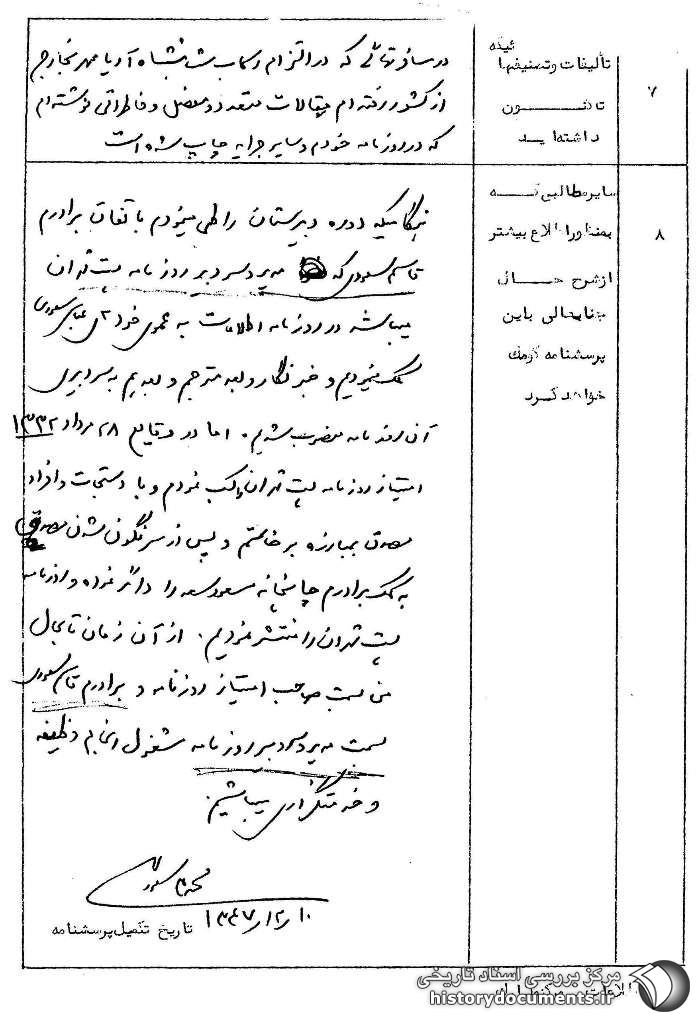 ۷
تألیفات و تصنیفهائیکه
تاکنون
داشته‌اید
در مسافرتهائی که در التزام رکاب شاهنشاه آریامهر بخارج
از کشور رفته‌ام مقالات متعدد و مفصل و خاطراتی نوشته‌ام
که در روزنامه خودم و سایر جراید چاپ شده است
۸
سایر مطالبی که
بمنظور اطلاع بیشتر
از شرح حال
جنابعالی باین
پرسشنامه کمک
خواهد کرد
هنگامیکه دوره دبیرستان را طی مینمودم باتفاق برادرم
قاسم مسعودی که مدیر و سردبیر روزنامه پست تهران
میباشد در روزنامه اطلاعات به عموی خود عباس مسعودی
کمک مینمودیم و خبرنگار و بعد مترجم و بعد هم به سردبیری
آن روزنامه منصوب شدیم. اما در وقایع ۲۸ مرداد ۱۳۳۲
امتیاز روزنامه پست تهران را کسب نمودم و با دستجات و افراد
مصدق بمبارزه برخاستم و پس از سرنگون شدن مصدق
به کمک برادرم چاپخانه مسعود سعد را دائر نموده و روزنامه
پست تهران را منتشر نمودیم. از آن زمان تا بحال
من بسمت صاحب امتیاز روزنامه و برادرم قاسم مسعودی
بسمت مدیر و سردبیر روزنامه مشغول انجام وظیفه
و خدمتگزاری میباشیم.
مسعودی
تاریخ تکمیل پرسشنامه ۱۰ر۲ر۱۳۴۷
مرکز بررسی اسناد تاریخی
historydocuments.ir